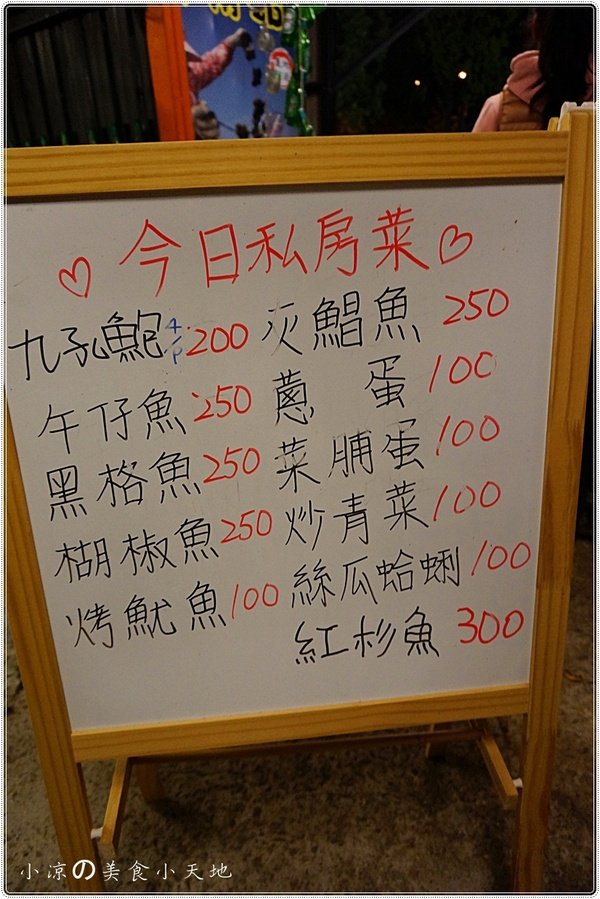 今日私房菜
九孔鮑 4P 200
午仔魚 250
黑格魚 250
楜椒魚 250
烤魷魚 100
灰鯧魚 250
蔥蛋 100
菜脯蛋 100
炒青菜 100
絲瓜蛤蜊 100
紅杉魚 300
小凉の美食小天地